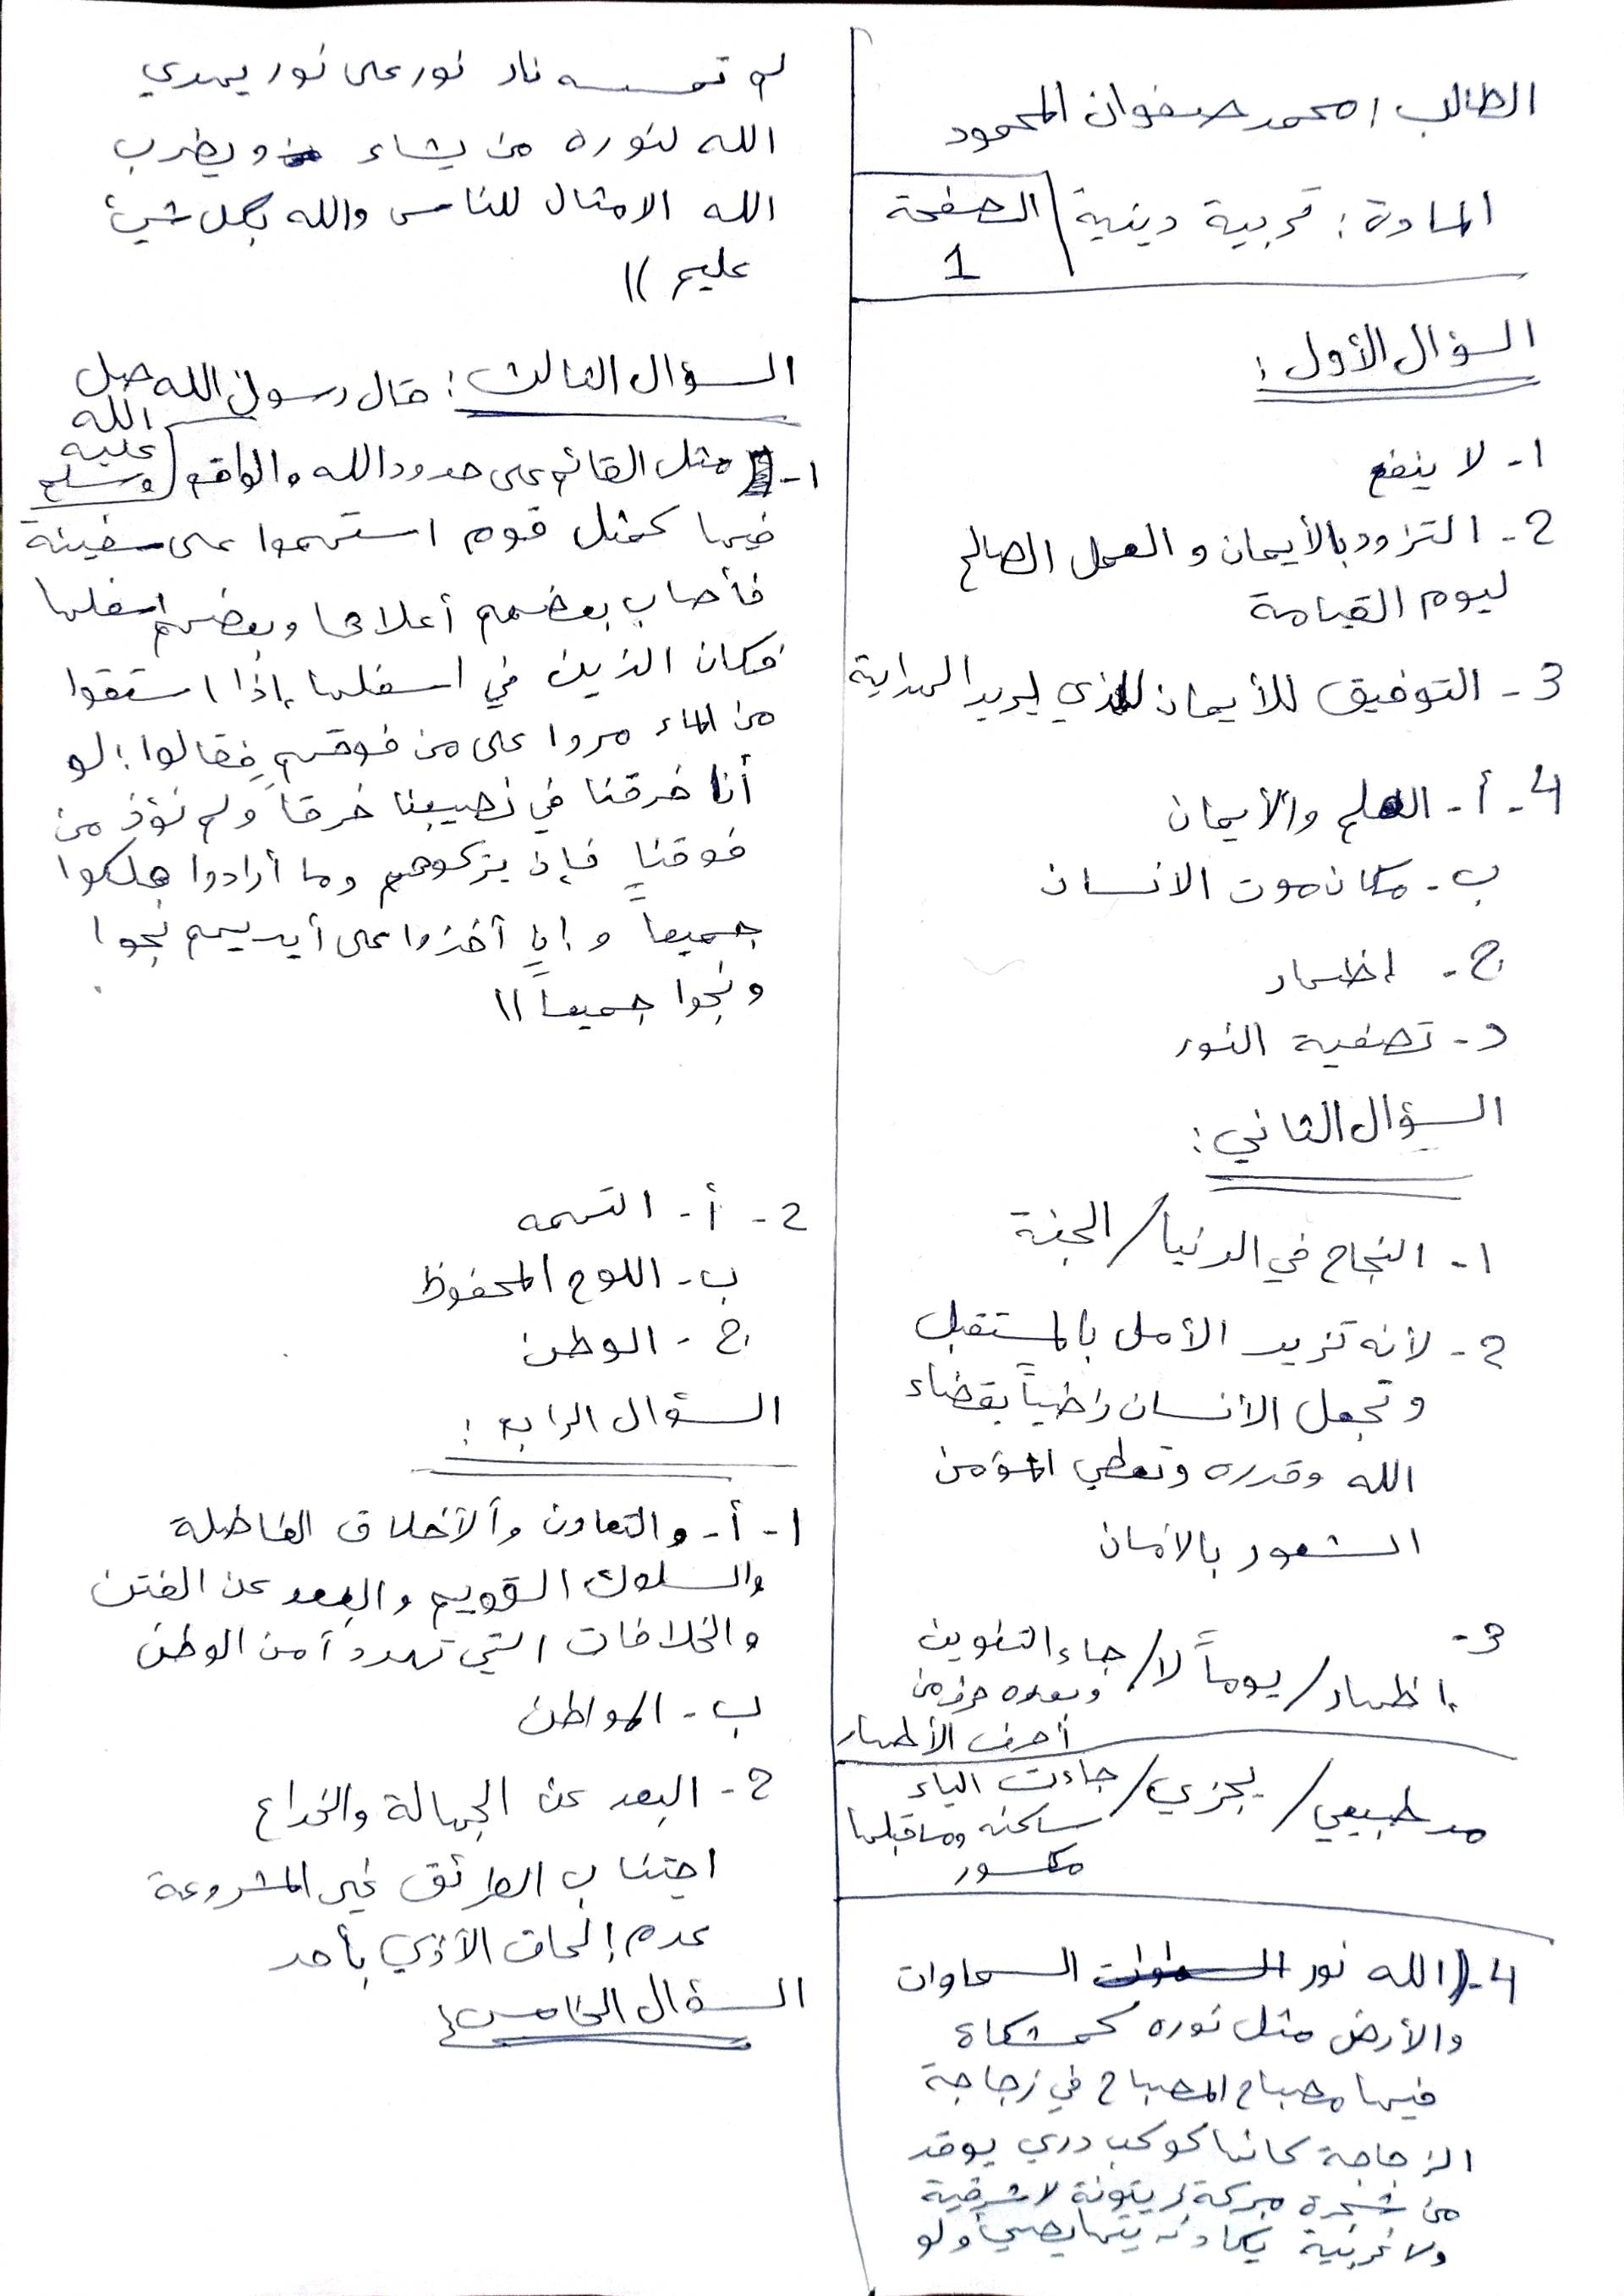 الطالب / محمد صفوان المحمود
المادة : تربية دينية / الصفحة
1
السؤال الأول :
1- لا ينفع
2- التزود بالأيمان و العمل الصالح
ليوم القيامة
3- التوفيق للأيمان للذي يريد الهداية
4- أ- العلم والأيمان
ب- مكان موت الانسان
ج- اظهار
د- تصفية النور
السؤال الثاني :
1- النجاح في الدنيا / الجنة
2- لأنه تزيد الأمل بالمستقبل
وتجعل الأنسان راضياً بقضاء
الله وقدره وتعطي المؤمن
الشعور بالأمان
3-
اظهار / يوماً لا / جاء التنوين
وبعده حرف من
أحرف الأظهار
مد طبيعي / يجزي / جاءت الياء
ساكنه وما قبلها
مكسور
4- (( الله نور السماوات
والأرض مثل نوره كمشكاة
فيها مصباح المصباح في زجاجة
الزجاجة كانها كوكب دري يوقد
من شجرة مبركة زيتونة لا شرقية
ولا غربية يكاد زيتها يضيئ ولو
لم تمسسه نار نور على نور يهدي
الله لنوره من يشاء ويضرب
الله الامثال للناس والله بكل شيئ
عليم ))
السؤال الثالث : قال رسول الله صل
الله
عليه
وسلم
1- مثل القائم على حدود الله والواقع
فيها كمثل قوم استهموا على سفينة
فأصاب بعضهم أعلاها وبعضهم اسفلها
فكان الذين في اسفلها إذا استقوا
من الماء مروا على من فوقهم فقالوا : لو
أنا خرقنا في نصيبنا خرقاً ولم نؤذ من
فوقنا فإن يتركوهم وما أرادوا هلكوا
جميعاً وإن أخذوا على أيديهم نجوا
ونجوا جميعاً ))
2- أ- التهمه
ب- اللوح المحفوظ
ج- الوطن
السؤال الرابع :
1- أ- والتعاون والأخلاق الفاضلة
والسلوك القويم والبعد عن الفتن
والخلافات التي تهدد أمن الوطن
ب- المواطن
2- البعد عن الجهالة والخداع
اجتناب الطرائق غير المشروعة
عدم إلحاق الأذي بأحد
السؤال الخامس :